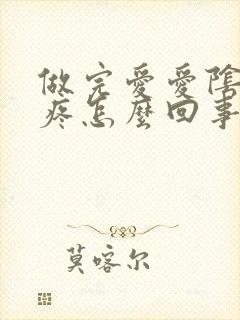 做完爱爱陰
疼怎麼回事
莫喀尔